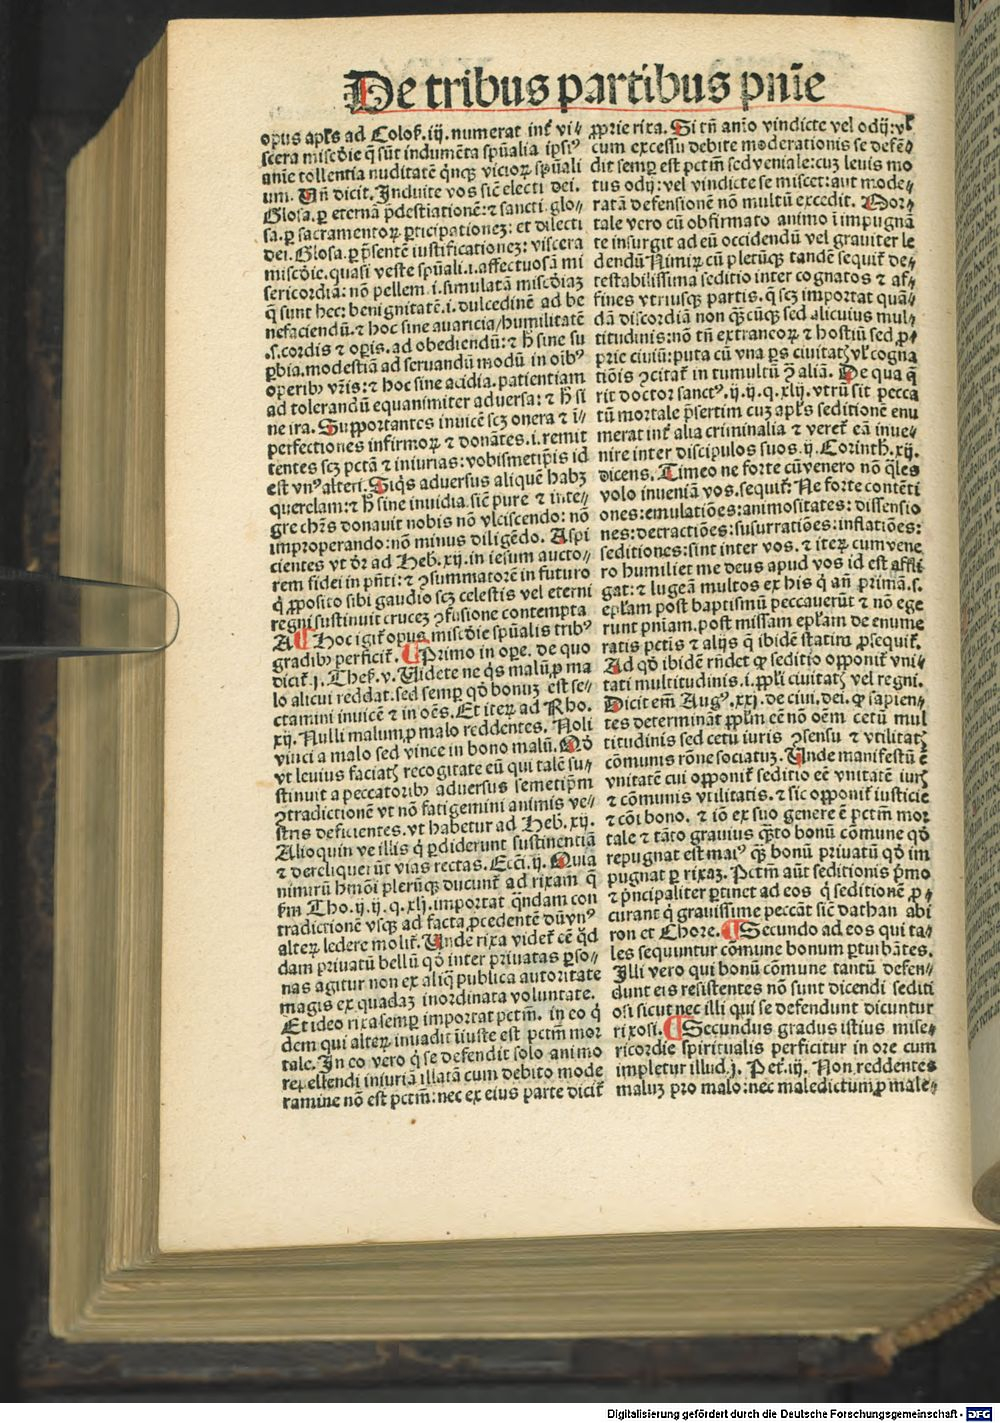 De tribus partibus pnīe
opus apl̄s ad Coloſ. iij. numerat int̄ vi⸗
ſcera miſc̄die q̄ ſūt indumēta ſpūalia ipſiꝰ
anīe tollentia nuditatē qͥnqꝫ vicioꝝ ſpūali
um. Vn̄ dicit. Induite vos ſic̄ electi dei.
Gloſa. ꝑ eternā p̄deſtiationē: ⁊ sancti glo⸗
ſa. ꝑ ſacramentoꝝ ꝑticipationeꝫ: et dilecti
dei. Gloſa. ꝑ p̄ſentē iuſtificationeꝫ: viſcera
miſc̄die. quaſi veſte ſpūali .i. affectuoſā mi
ſericordiā: nō pellem .i. ſimulatā miſc̄diaꝫ
q̄ ſunt hec: benignitatē .i. dulcedinē ad be
nefaciendū. ⁊ hoc ſine auaricia/ humilitatē
.ſ. cordis ⁊ oꝑis. ad obediendū: ⁊ h̄ ſine ſu
ꝑbia. modeſtiā ad ſeruandū modū in oībꝰ
operibꝰ vr̄is: ⁊ hoc ſine acidia. patientiam
ad tolerandū equanimiter aduerſa: ⁊ h̄ ſi
ne ira. Supportantes inuicē ſcꝫ onera ⁊ ī⸗
perfectiones infirmoꝝ ⁊ donātes .i. remit
tentes ſcꝫ pctā ⁊ iniurias: vobiſmetip̄is id
eſt vnꝰ alteri. Siqͥs aduerſus aliquē habꝫ
querelam: ⁊ h̄ ſine inuidia ſic̄ pure ⁊ inte⸗
gre chr̄s donauit nobis nō vlciſcendo: nō
improperando: nō minus diligēdo. Aſpi
cientes vt dr̄ ad Heb. xij. in ieſum aucto⸗
rem fidei in pn̄ti: ⁊ ꝯſummatorē in futuro
qͥ ꝓpoſito ſibi gaudio ſcꝫ celeſtis vel eterni
regni ſuſtinuit cruceꝫ ꝯfuſione contempta
A ¶ Hoc igit̄ opus miſc̄die ſpūalis tribꝰ
gradibꝰ perficit̄. ¶ Primo in oꝑe. de quo
dicit̄ .j. Theſ. v. Videte ne qͥs malū ꝓ ma
lo alicui reddat. ſed ſemꝑ qd̄ bonuꝫ eſt ſe⸗
ctamini inuicē ⁊ in oēs. Et iteꝝ ad Rho.
xij. Nulli malum ꝓ malo reddentes. Noli
vinci a malo ſed vince in bono malū. Qd̄
vt leuius faciatꝭ recogitate eū qui talē ſu⸗
ſtinuit a peccatoribꝰ aduerſus ſemetip̄m
ꝯtradictionē vt nō fatigemini animis ve⸗
ſtris deficientes. vt habetur ad Heb. xij.
Alioquin ve illis qͥ ꝑdiderunt ſuſtinentiā
⁊ dereliquer̄ut vias rectas. Ecc̄i. ij. Quia
nimirū hmōi plerūqꝫ ducunt̄ ad rixam q̄
ſm̄ Tho. ij. ij. q. xlj. importat qͣndam con
tradictionē vſqꝫ ad facta ꝓcedentē dū vnꝰ
alteꝝ ledere molit̄. Unde rixa videt̄ eē qͦd
dam priuatū bellū qd̄ inter priuatas ꝑſo⸗
nas agitur non ex aliqͣ publica autoritate
magis ex quadaꝫ inordinata voluntate.
Et ideo rixa ſemꝑ importat pctm̄. in eo qͥ
dem qui alteꝝ inuadit īiuſte eſt pctm̄ mor
tale. In eo vero qͥ ſe defendit ſolo animo
repellendi iniuriā illatā cum debito mode
ramine nō eſt pctm̄: nec ex eius parte dicit̄
ꝓprie rixa. Si tn̄ anīo vindicte vel odij: vl̄
cum exceſſu debite moderationis ſe defē⸗
dit ſemꝑ eſt pctm̄ ſed veniale: cuꝫ leuis mo
tus odij: vel vindicte ſe miſcet: aut mode⸗
ratā defenſionē nō multū excedit. Mor⸗
tale vero cū obfirmato animo ī impugnā
te inſurgit ad eū occidendū vel grauiter le
dendū Nimiꝝ cū pletūqꝫ tandē ſequit̄ de⸗
teſtabiliſſima ſeditio inter cognatos ⁊ af⸗
fines vtriuſqꝫ partis. q̄ ſcꝫ importat quā⸗
dā diſcordiā non qͣꝫcūqꝫ ſed alicuius mul⸗
titudinis: nō tn̄ extraneoꝝ ⁊ hoſtiū ſed ꝓ⸗
prie ciuiū: puta cū vna ꝑs ciuitatꝭ vl̄ cogna
tiōis ꝯcitat̄ in tumultū ꝯ aliā. De qua q̄
rit doctor ſanctꝰ. ij. ij. q. xlij. vtrū ſit pecca
tū mortale p̄ſertim cuꝫ apl̄s ſeditionē enu
merat int̄ alia criminalia ⁊ veret̄ eā inue⸗
nire inter diſcipulos ſuos. ij. Corinth. xij.
dicens. Timeo ne forte cū venero nō qͣles
volo inueniā vos. ſequit̄. Ne forte contēti
ones: emulatiōes: animoſitates: diſſenſio
nes: detractiōes: ſuſurratiōes: inflatiōes:
ſeditiones: ſint inter vos. ⁊ iteꝝ cum vene
ro humiliet me deus apud vos id eſt affli
gat: ⁊ lugeā multos ex his qͥ an̄ primā .ſ.
epl̄am poſt baptiſmū peccauerūt ⁊ nō ege
runt pn̄iam. poſt miſſam epl̄am de enume
ratis pctīs ⁊ alijs qͥ ibidē ſtatim ꝓſequit̄.
Ad qd̄ ibidē rn̄det ꝙ ſeditio opponit̄ vni⸗
tati multitudinis .i. ppl̄i ciuitatꝭ vel regni.
Dicit em̄ Augꝰ. xxj. de ciui. dei. ꝙ ſapien⸗
tes determināt ppl̄m eē nō oēm cetū mul
titudinis ſed cetū iuris ꝯſenſu ⁊ vtilitatꝭ
cōmunis rōne ſociatuꝫ. Unde manifeſtū ē
vnitatē cui opponit̄ ſeditio eē vnitatē iurꝭ
⁊ cōmunis vtilitatis. ⁊ ſic opponit̄ iuſticie
⁊ cōi bono. ⁊ iō ex ſuo genere ē pctm̄ mor
tale ⁊ tāto grauius qͣꝫto bonū cōmune qd̄
repugnat eſt maiꝰ qꝫ bonū priuatū qd̄ im
pugnat ꝑ rixaꝫ. Pctm̄ aūt ſeditionis p̄mo
⁊ pͥncipaliter ꝑtinet ad eos qͥ ſeditionē ꝓ⸗
curant qͥ grauiſſime peccāt ſic̄ dathan abi
ron et Chore. ¶ Secundo ad eos qui ta⸗
les ſequuntur cōmune bonum ꝑtuibātes.
Illi vero qui bonū cōmune tantū defen⸗
dunt eis reſiſtentes nō ſunt dicendi ſediti
oſi ſicut nec illi qui ſe defendunt dicuntur
rixoſi. ¶ Secundus gradus iſtius miſe⸗
ricordie ſpiritualis perficitur in ore cum
impletur illud .j. Pet̄. iij. Non reddentes
maluꝫ pro malo: nec maledictum ꝓ male⸗
Digitalisierung gefördert durch die Deutsche Forschungsgemeinschaft - DFG